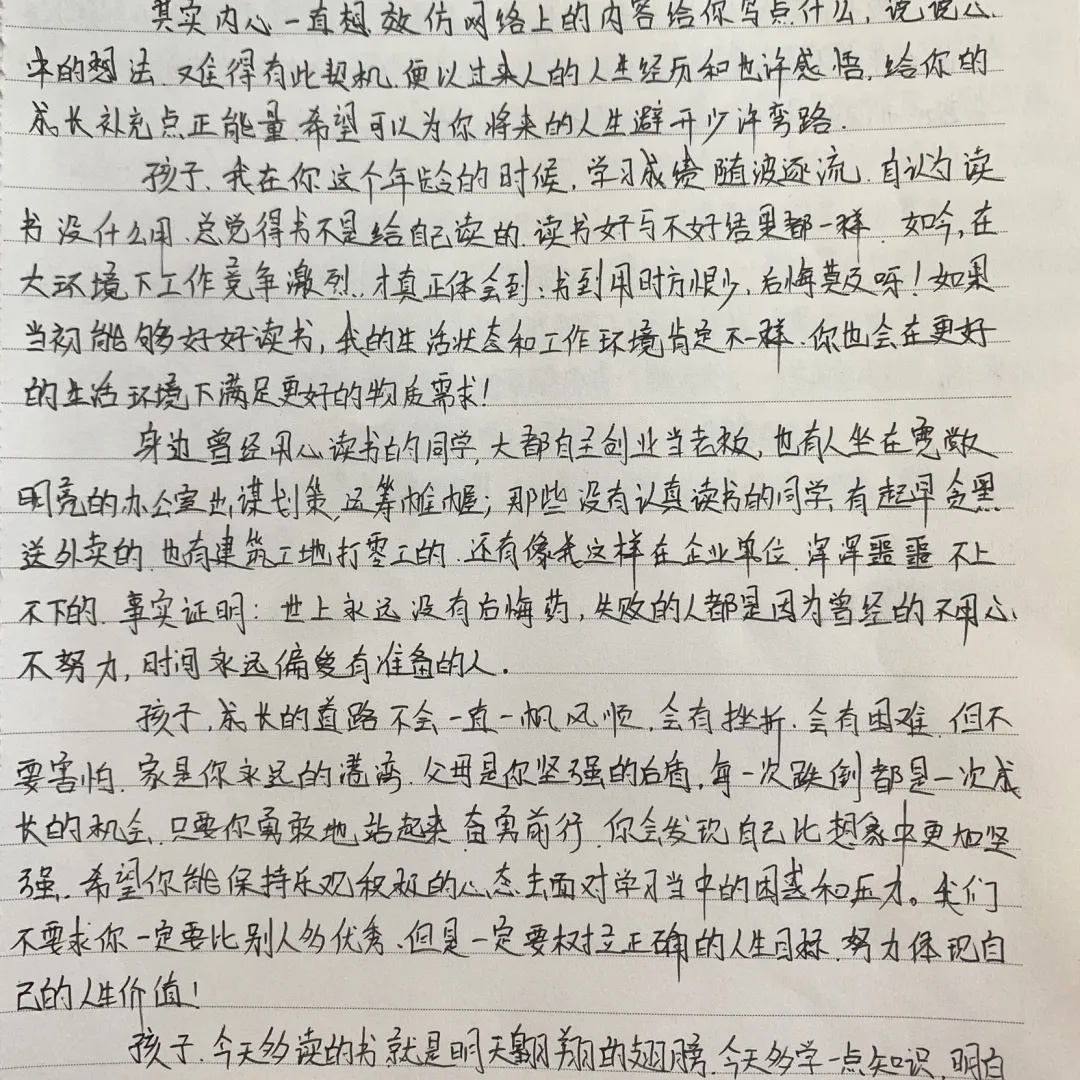 其实内心一直想效仿网络上的内容给你写点什么,说说心
中的想法.难得有此契机.便以过来人的人生经历和也许感悟.给你的
成长补充点正能量.希望可以为你将来的人生避开少许弯路.
孩子.我在你这个年龄的时候.学习成绩随波逐流.自认为读
书没什么用.总觉得书不是给自己读的.读书好与不好结果都一样.如今,在
大环境下工作竞争激烈.才真正体会到:书到用时方恨少,后悔莫及呀!如果
当初能够好好读书,我的生活状态和工作环境肯定不一样.你也会在更好
的生活环境下满足更好的物质需求!
身边曾经用心读书的同学,大都自主创业当老板,也有人坐在宽敞
明亮的办公室出谋划策,运筹帷幄;那些没有认真读书的同学,有起早贪黑
送外卖的.也有建筑工地打零工的.还有像我这样在企业单位.浑浑噩噩不上
不下的.事实证明:世上永远没有后悔药,失败的人都是因为曾经的不用心.
不努力,时间永远偏爱有准备的人.
孩子,成长的道路不会一直一帆风顺.会有挫折.会有困难.但不
要害怕.家是你永远的港湾.父母是你坚强的后盾.每一次跌倒都是一次成
长的机会.只要你勇敢地站起来.奋勇前行.你会发现自己比想象中更加坚
强.希望你能保持乐观积极的心态去面对学习当中的困惑和压力。我们
不要求你一定要比别人多优秀.但是一定要树立正确的人生目标.努力体现自
己的人生价值!
孩子.今天多读的书就是明天翱翔的翅膀.今天多学一点知识.明白